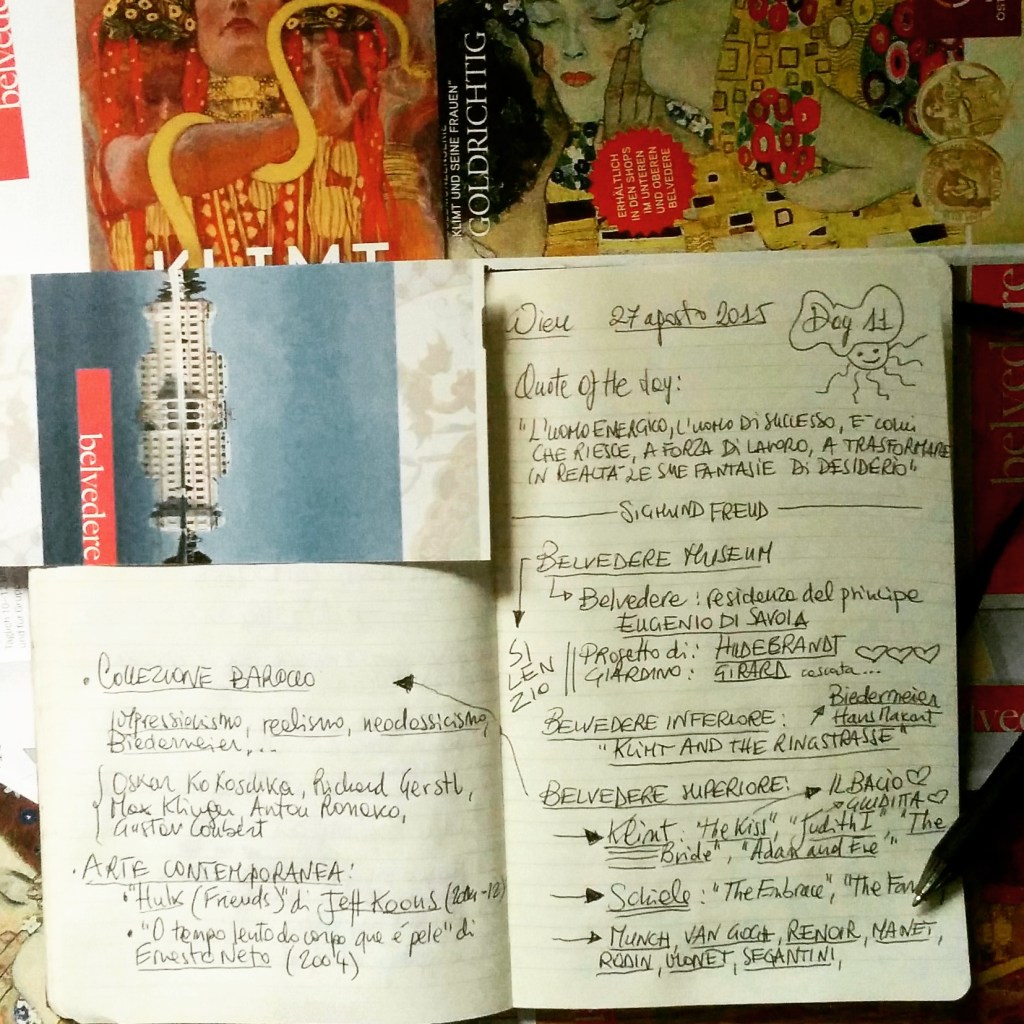 belvedere
KLIMT
KLIMT UND SEINE FRAUEN"
GOLDRICHTIG
ERHÄLTLICH
IN DEN SHOPS
IM UNTEREN
UND OBEREN
BELVEDERE
belvedere
belvedere
Wien 27 agosto 2015 Day 11
Quote of the day:
"L'UOMO ENERGICO, L'UOMO DI SUCCESSO, È COLUI
CHE RIESCE, A FORZA DI LAVORO, A TRASFORMARE
IN REALTÀ LE SUE FANTASIE DI DESIDERIO"
SIGMUND FREUD
BELVEDERE MUSEUM
Belvedere: residenza del principe
EUGENIO DI SAVOIA
SI
LEN
ZIO
PROGETTO DI: HILDEBRANDT
GIARDINO: GIRARD cascata...
BELVEDERE INFERIORE: Biedermeier
Hans Makart
"KLIMT AND THE RINGSTRASSE"
BELVEDERE SUPERIORE: IL BACIO
GIUDITTA
Klimt: "The Kiss", "Judith I", "The
Bride", "Adam and Eve"
Schiele: "The Embrace", "The Fam
MUNCH, VAN GOGH, RENOIR, MANET,
RODIN, MONET, SEGANTINI,
• COLLEZIONE BAROCCO
Impressionismo, realismo, neoclassicismo,
Biedermeier,...
Oskar Kokoschka, Richard Gerstl,
Max Klinger, Anton Romako,
Gustav Courbet
• ARTE CONTEMPORANEA:
• "Hulk (Friends)" di Jeff Koons (2004-12)
• "O tempo lento do corpo que é pele" di
Ernesto Neto (2004)